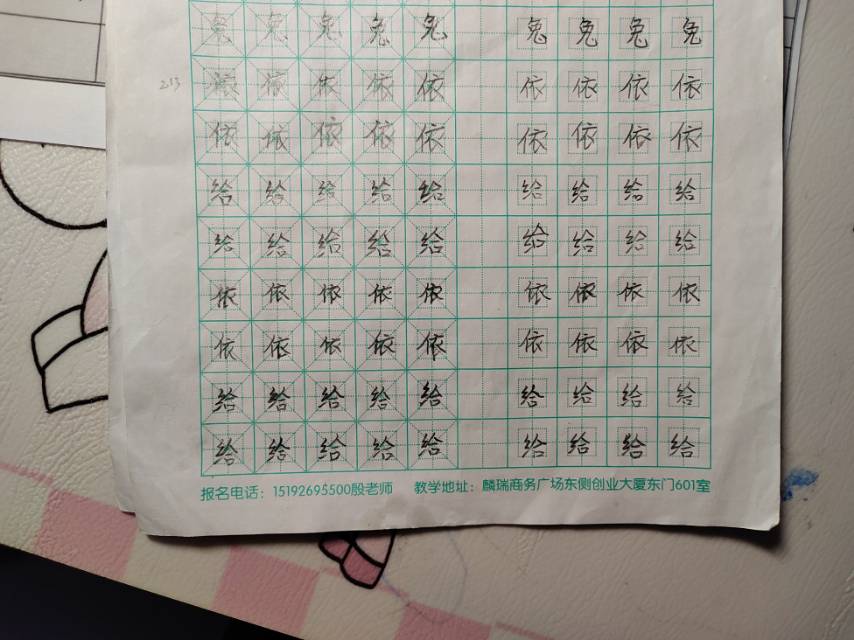 兔 兔 兔 兔 兔 兔 兔 兔 兔
213 依 依 依 依 依 依 依 依 依
依 依 依 依 依 依 依 依 依
给 给 给 给 给 给 给 给 给
给 给 给 给 给 给 给 给 给
依 依 依 依 依 依 依 依 依
依 依 依 依 依 依 依 依 依
给 给 给 给 给 给 给 给 给
给 给 给 给 给 给 给 给 给
报名电话：15192695500殷老师 教学地址：麟瑞商务广场东侧创业大厦东门601室